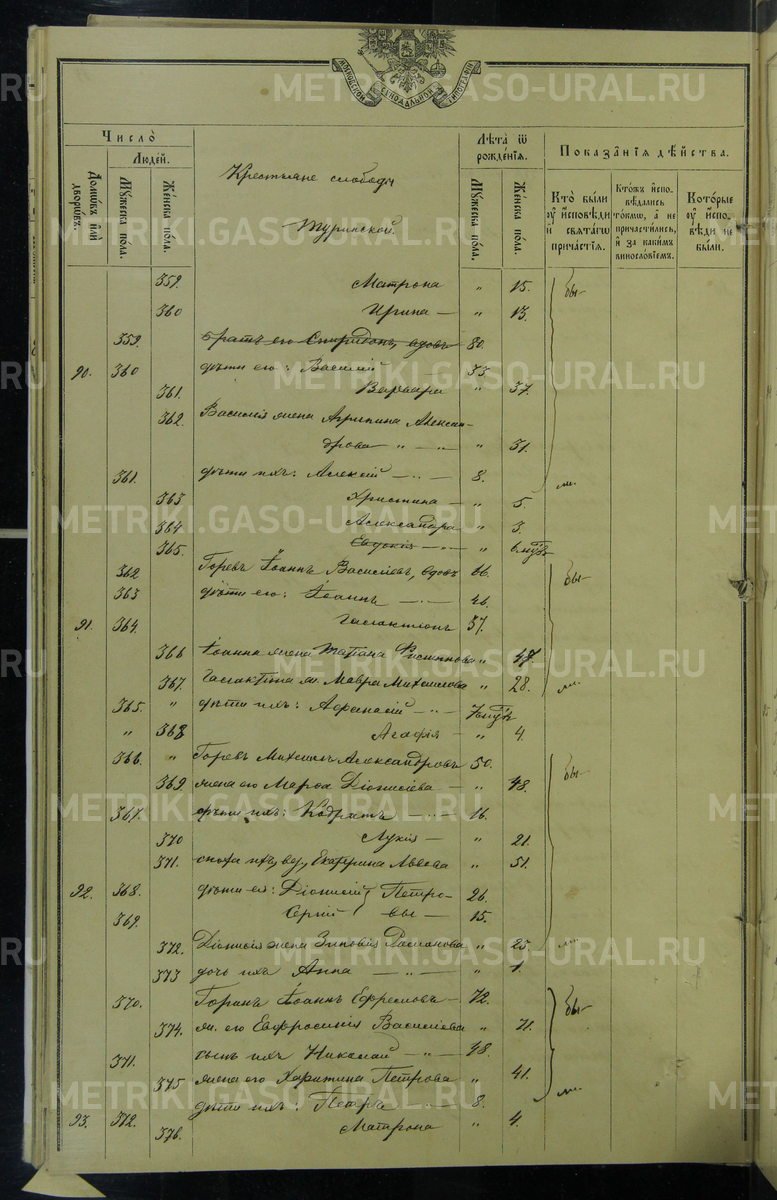 МОСКОВСКОЙ СѴНОДАЛЬНОЙ ТИПОГРАФІИ
Число̀
Людей.
Домѡвъ и҆лѝ дворѡвъ.
Мꙋжеска по́ла.
Же́нска по́ла.
Крестьяне слободы
Туринской.
Лѣ̑та ѿ рожде́нїѧ.
Мꙋжеска по́ла.
Же́нска по́ла.
Показа̑нїѧ дѣ́йства.
Кто̀ были ᲂу҆ и҆сповѣди и҆ свѧта́гѡ прича́стїѧ.
Кто́жъ и҆спо-
вѣдались
то́кмѡ, а҆ не
причасти́лись,
и҆ за каки́мъ
винослові́емъ.
Кото́рые ᲂу҆ и҆спо-
вѣди не были.
359. Матрона " 15. бы-
360 Ирина — " 13.
359. братъ его Спиридонъ, вдовъ 80.
90. 360 дѣти его: Василій 35
361. Варвара " 37.
362. Василія жена Агрипина Алексан-
дрова " " 31.
361. дѣти ихъ: Алексій — " — 8. ли.
363 Христина — " 5.
364 Александра " 3.
365. Евдокія — " — "
362 Горевъ Іоаннъ Василіевъ, вдовъ 66. бы-
363 дѣти его: Іоаннъ — 46.
91. 364. Галактіонъ 37.
366 Іоанна жена Татіана " 47.
367. Галактіона ж. Мавра Михаилова " 28. ли.
365. " дѣти ихъ: Афанасій — " —
" 368 Агафія — " 4.
366. " Горевъ Михаилъ Александровъ 50. бы-
369 жена его Марѳа Діонисіева — " 48.
367. дѣти ихъ: Кодратъ — " — 16.
370 Лукія — " 21.
371. сноха ихъ, вд., Екатерина Львова " 51.
92. 368. дѣти ея: Діонисій } Петро- 26.
369. Сергій } вы — 15.
372. Діонисія жена Зиновія Романова " 25. ли.
373 дочь ихъ Анна — " — " 1.
370. Горинъ Іоаннъ Ефремовъ — 72. бы-
374. ж. его Евфросинія Василіева " 71.
371. сынъ ихъ Николай — " — 48.
375 жена его Харитина Петрова " 41. ли.
93. 372. дѣти ихъ: Петръ — 8.
376. Матрона " 4.
METRIKI.GASO-URAL.RU